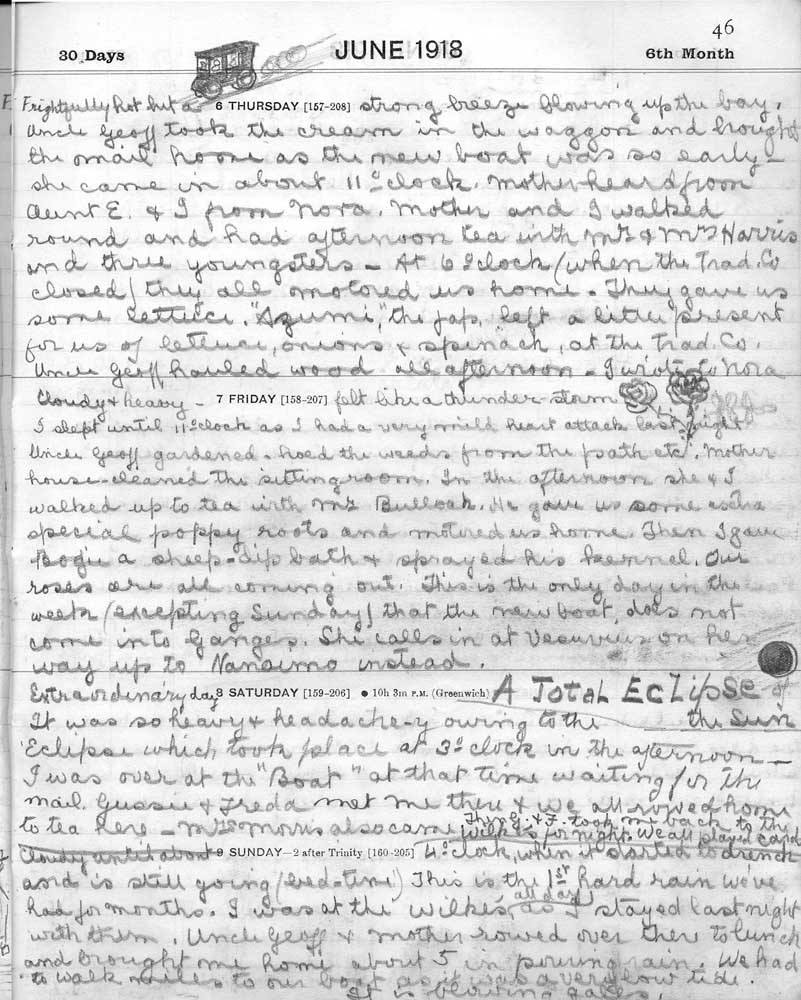 46
30 Days JUNE 1918 6th Month
Frightfully hot but a 6 THURSDAY [157-208] strong breeze blowing up the bay.
Uncle Geoff took the cream in the waggon and brought
the mail home as the new boat was so early –
she came in about 11 o'clock. Mother heard from
Aunt E. & I from Nora. Mother and I walked
round and had afternoon tea with Mr & Mrs Harris
and three youngsters – At 6 o'clock (when the Trad. Co
closed) they all motored us home – They gave us
some lettuce. "Azumi," the Jap, left a little present
for us of lettuce, onions & spinach, at the Trad. Co.
Uncle Geoff hauled wood all afternoon – I wrote to Nora
Cloudy & heavy – 7 FRIDAY [158-207] felt like a thunder-storm
I slept until 11 o'clock as I had a very mild heart attack last night
Uncle Geoff gardened – hoed the weeds from the path etc. Mother
house-cleaned the sitting room. In the afternoon she & I
walked up to tea with Mr Bullock. He gave us some extra
special poppy roots and motored us home. Then I gave
a sheep-dip bath & sprayed his kennel. Our
roses are all coming out. This is the only day in the
week (excepting Sunday) that the new boat does not
come into Ganges. She calls in at Vesuvius on her
way up to Nanaimo instead.
Extraordinary day 8 SATURDAY [159-206] ● 10h 3m P.M. (Greenwich) A Total Eclipse of
It was so heavy & headache-y owing to the the Sun
Eclipse which took place at 3 o'clock in the afternoon –
I was over at the "Boat" at that time waiting for the
mail. Gussie & Freda met me there & we all rowed home
to tea here – Mrs Morris also came. Then G. & F. took me back to the
Wilkes for night. We all played card
Cloudy until about 9 SUNDAY—2 after Trinity [160-205] 4 o'clock, when it started to drench
and is still going (bed-time) This is the 1st hard rain we've
had for months. I was at the Wilkes all day as I stayed last night
with them. Uncle Geoff & Mother rowed over there to lunch
and brought me home about 5 in pouring rain. We had
to walk miles to our boat as it was a very low tide.
It is blowing gales